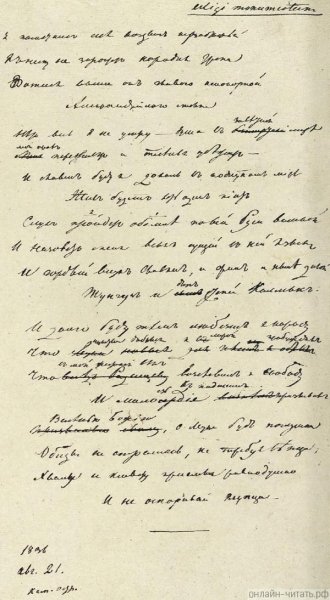 Exegi monumentum
Я памятникъ себѣ воздвигъ нерукотворный
Къ нему не заростетъ народная тропа
Вознесся выше онъ главою непокорной
Александрійскаго столпа
Нѣтъ весь я не умру — душа въ завѣтной лирѣ
Мой прахъ переживетъ и тлѣнья убѣжитъ —
И славенъ буду я доколь въ подлунномъ мірѣ
Живъ будетъ хоть одинъ піитъ
Слухъ обо мнѣ пройдетъ по всей Руси великой
И назоветъ меня всякъ сущій въ ней языкъ
И гордый внукъ Славянъ, и Финнъ, и нынѣ дикой
Тунгузъ и другъ степей Калмыкъ
И долго буду тѣмъ любезенъ я народу
чувства добрыя я лирой пробуждалъ
Что звуки новые для пѣсенъ я обрѣлъ
въ мой жестокій вѣкъ
Что вслѣдъ Радищеву возславилъ я свободу
къ падшимъ
И милосердіе воспѣлъ призывалъ
Велѣнью Божію
о Муза будь послушна
Обиды не страшась, не требуя вѣнца
Хвалу и клевету пріемли равнодушно
И не оспоривай глупца
1836
авг. 21.
Кам. остр.
онлайн-читать.рф